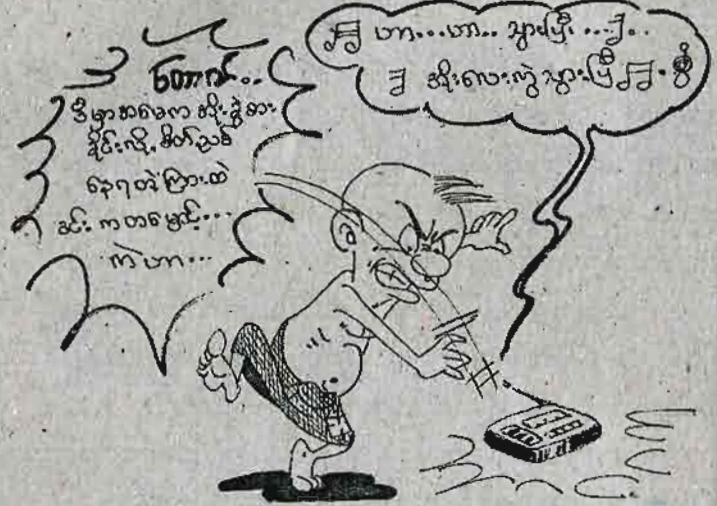 တောက်..
ဒီမှာအမေက အိုးခွဲစား
ခိုင်းလို့ စိတ်ညစ်
နေရတဲ့ကြားထဲ
မင်း ကတမှောင့်...
ကဲဟာ...
ဟာ...ဟာ.. သွားပြီး...
အိုးလေးကွဲသွားပြီ